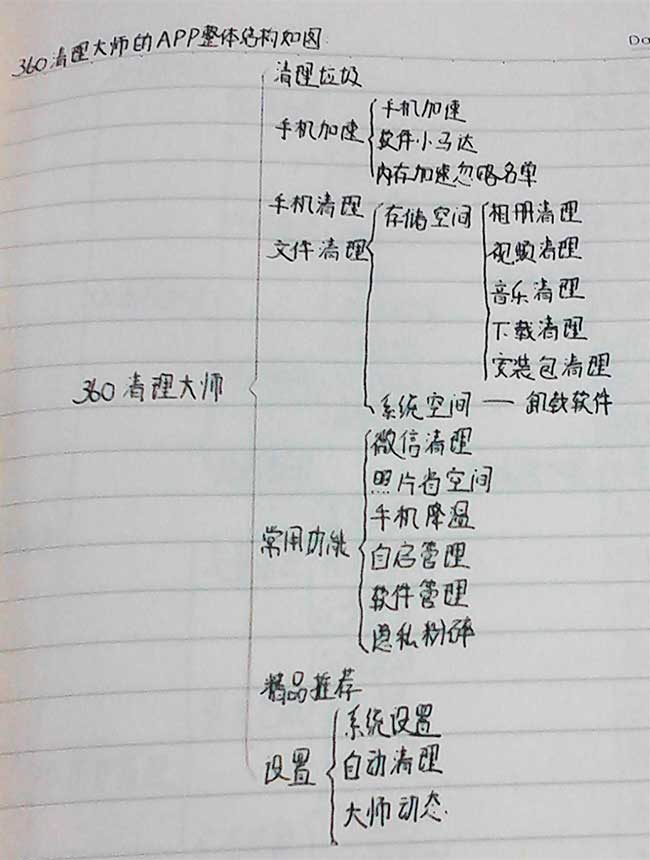 360清理大师的APP整体结构如图
Do
清理垃圾
手机加速
手机加速
软件小马达
内存加速忽略名单
手机清理
文件清理
存储空间
相册清理
视频清理
音乐清理
下载清理
安装包清理
系统空间 — 卸载软件
360清理大师
常用功能
微信清理
照片省空间
手机降温
自启管理
软件管理
隐私粉碎
精品推荐
设置
系统设置
自动清理
大师动态